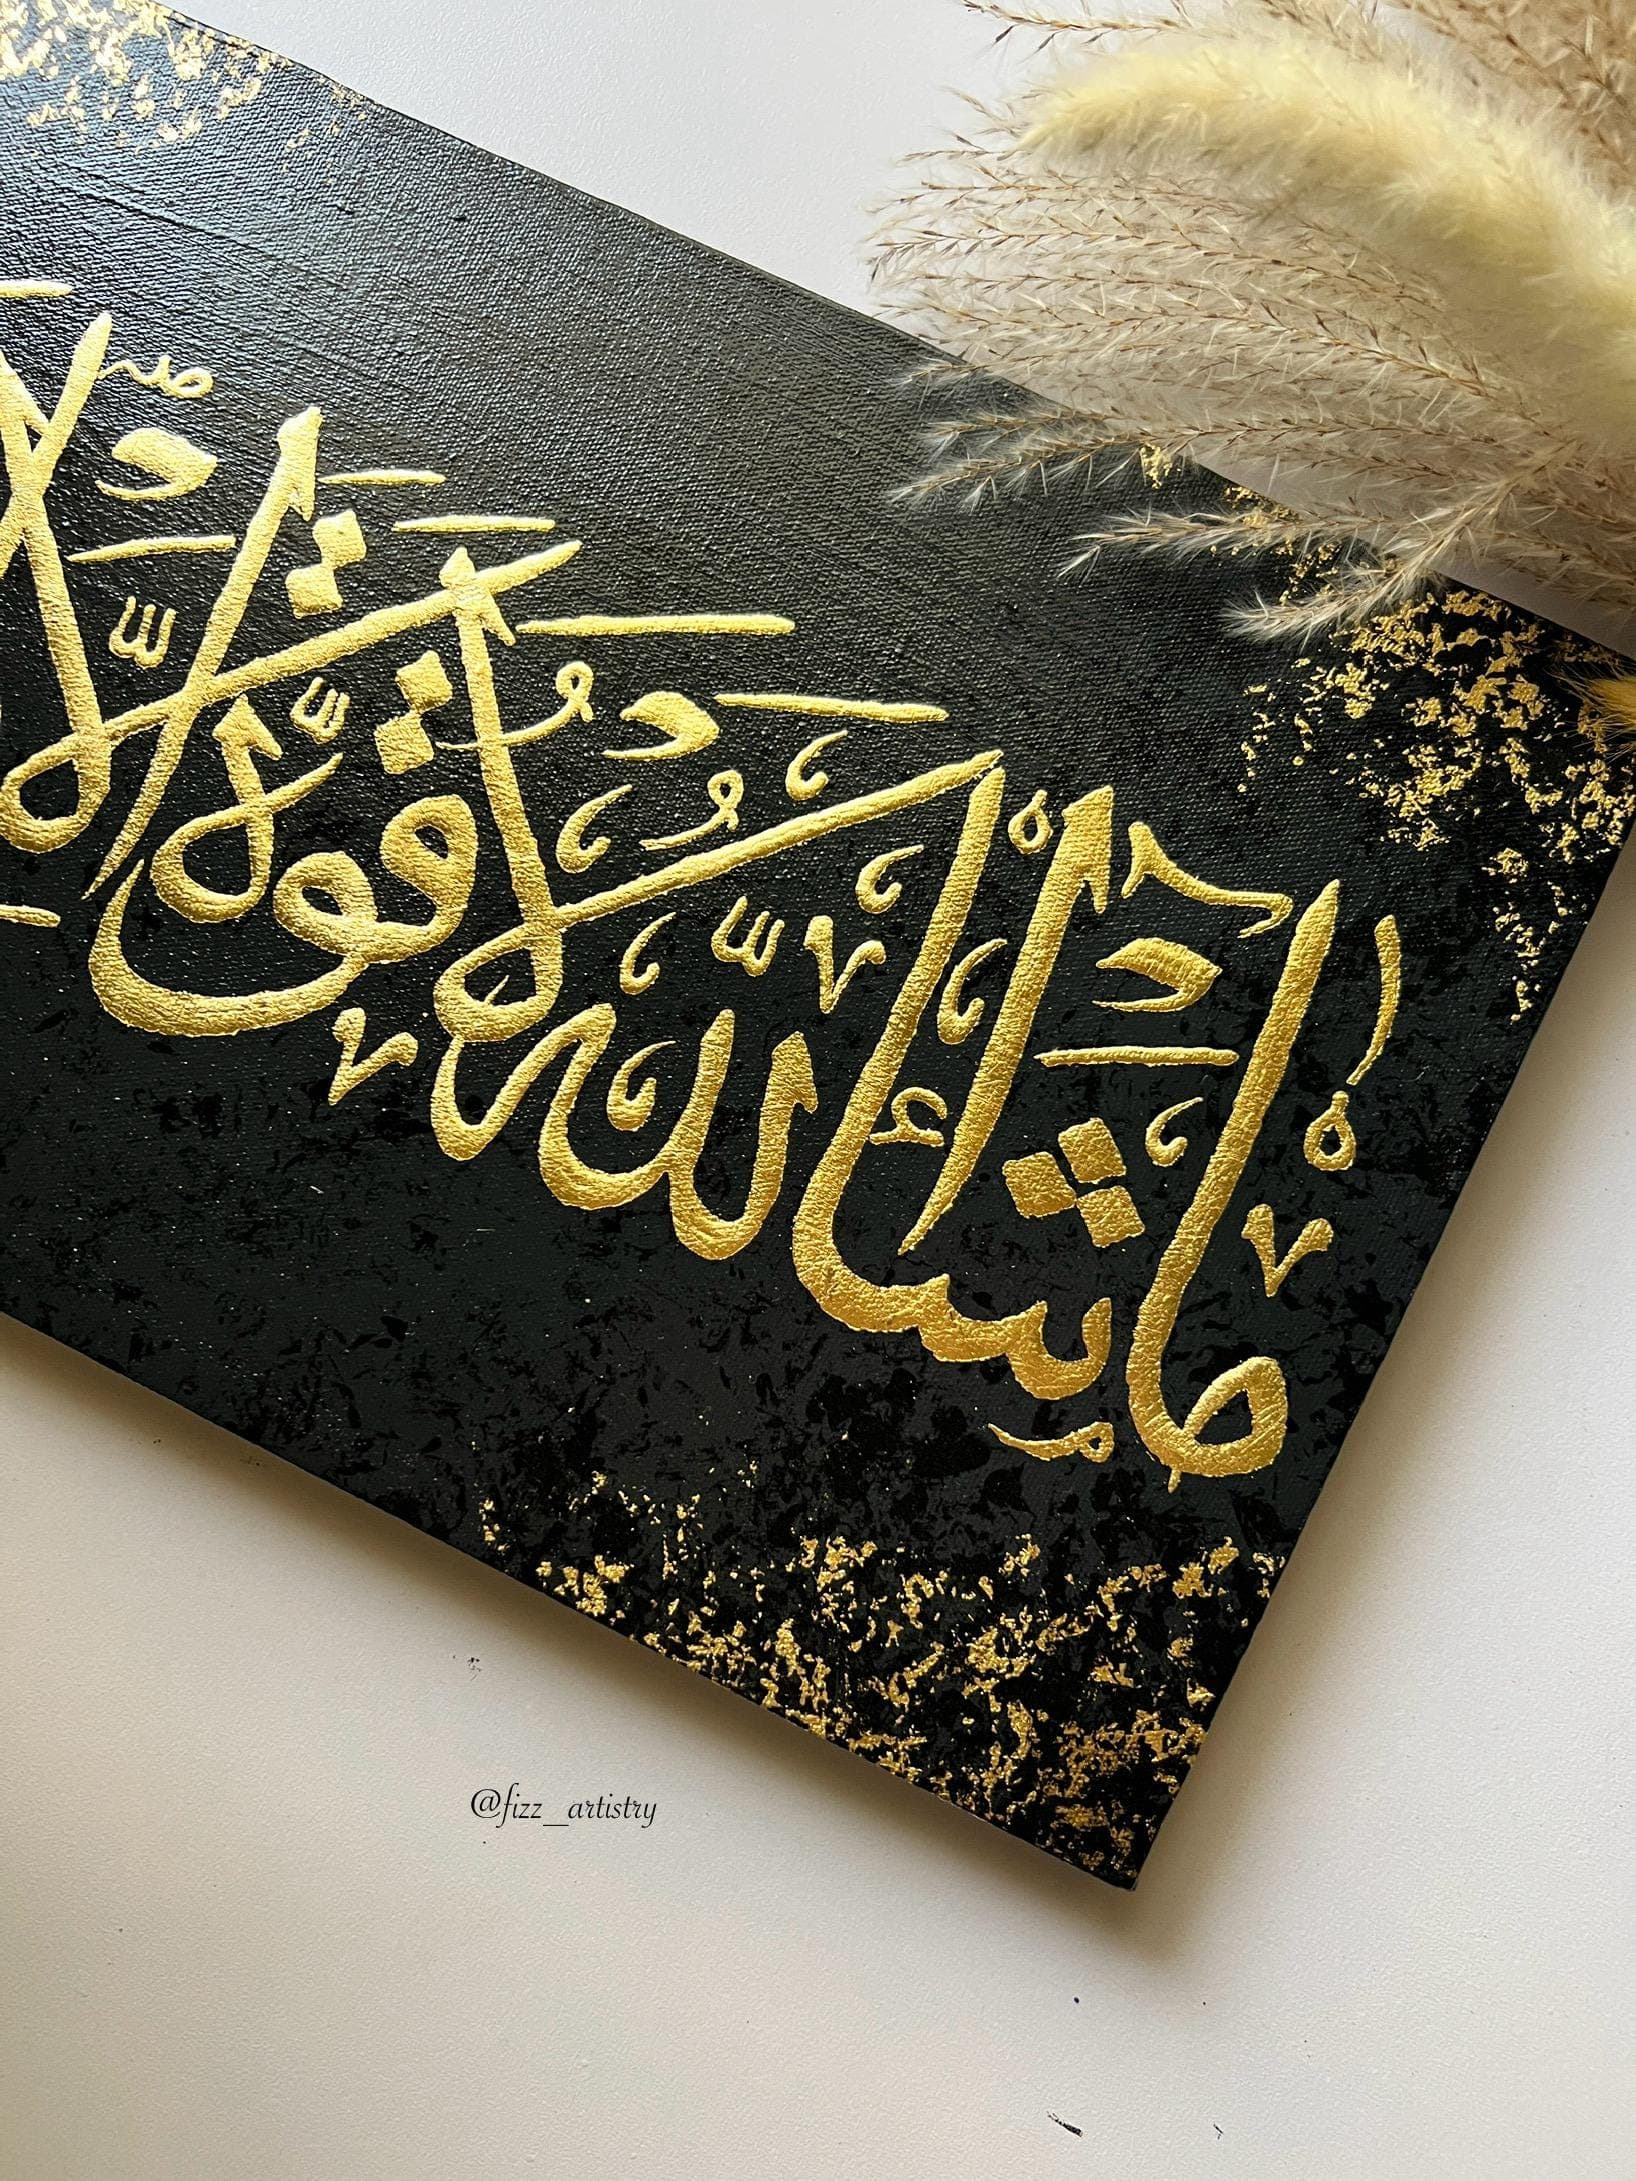 مَا شَاءَ اللّٰهُ لَا قُوَّةَ إِلَّا
@fizz_artistry